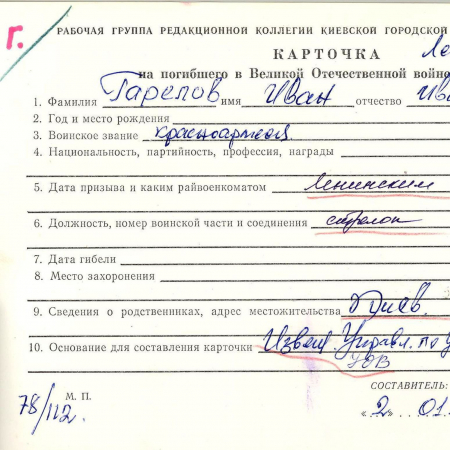 г. РАБОЧАЯ ГРУППА РЕДАКЦИОННОЙ КОЛЛЕГИИ КИЕВСКОЙ ГОРОДСКОЙ
КАРТОЧКА Ле
на погибшего в Великой Отечественной войне
1. Фамилия Гарелов имя Иван отчество Ива
2. Год и место рождения
3. Воинское звание красноармеец
4. Национальность, партийность, профессия, награды
5. Дата призыва и каким райвоенкоматом Ленинским
6. Должность, номер воинской части и соединения стрелок
7. Дата гибели
8. Место захоронения
9. Сведения о родственниках, адрес местожительства Киев.
10. Основание для составления карточки Извещ. Управл. по у
78/112. М. П.
СОСТАВИТЕЛЬ:
«2» 01.